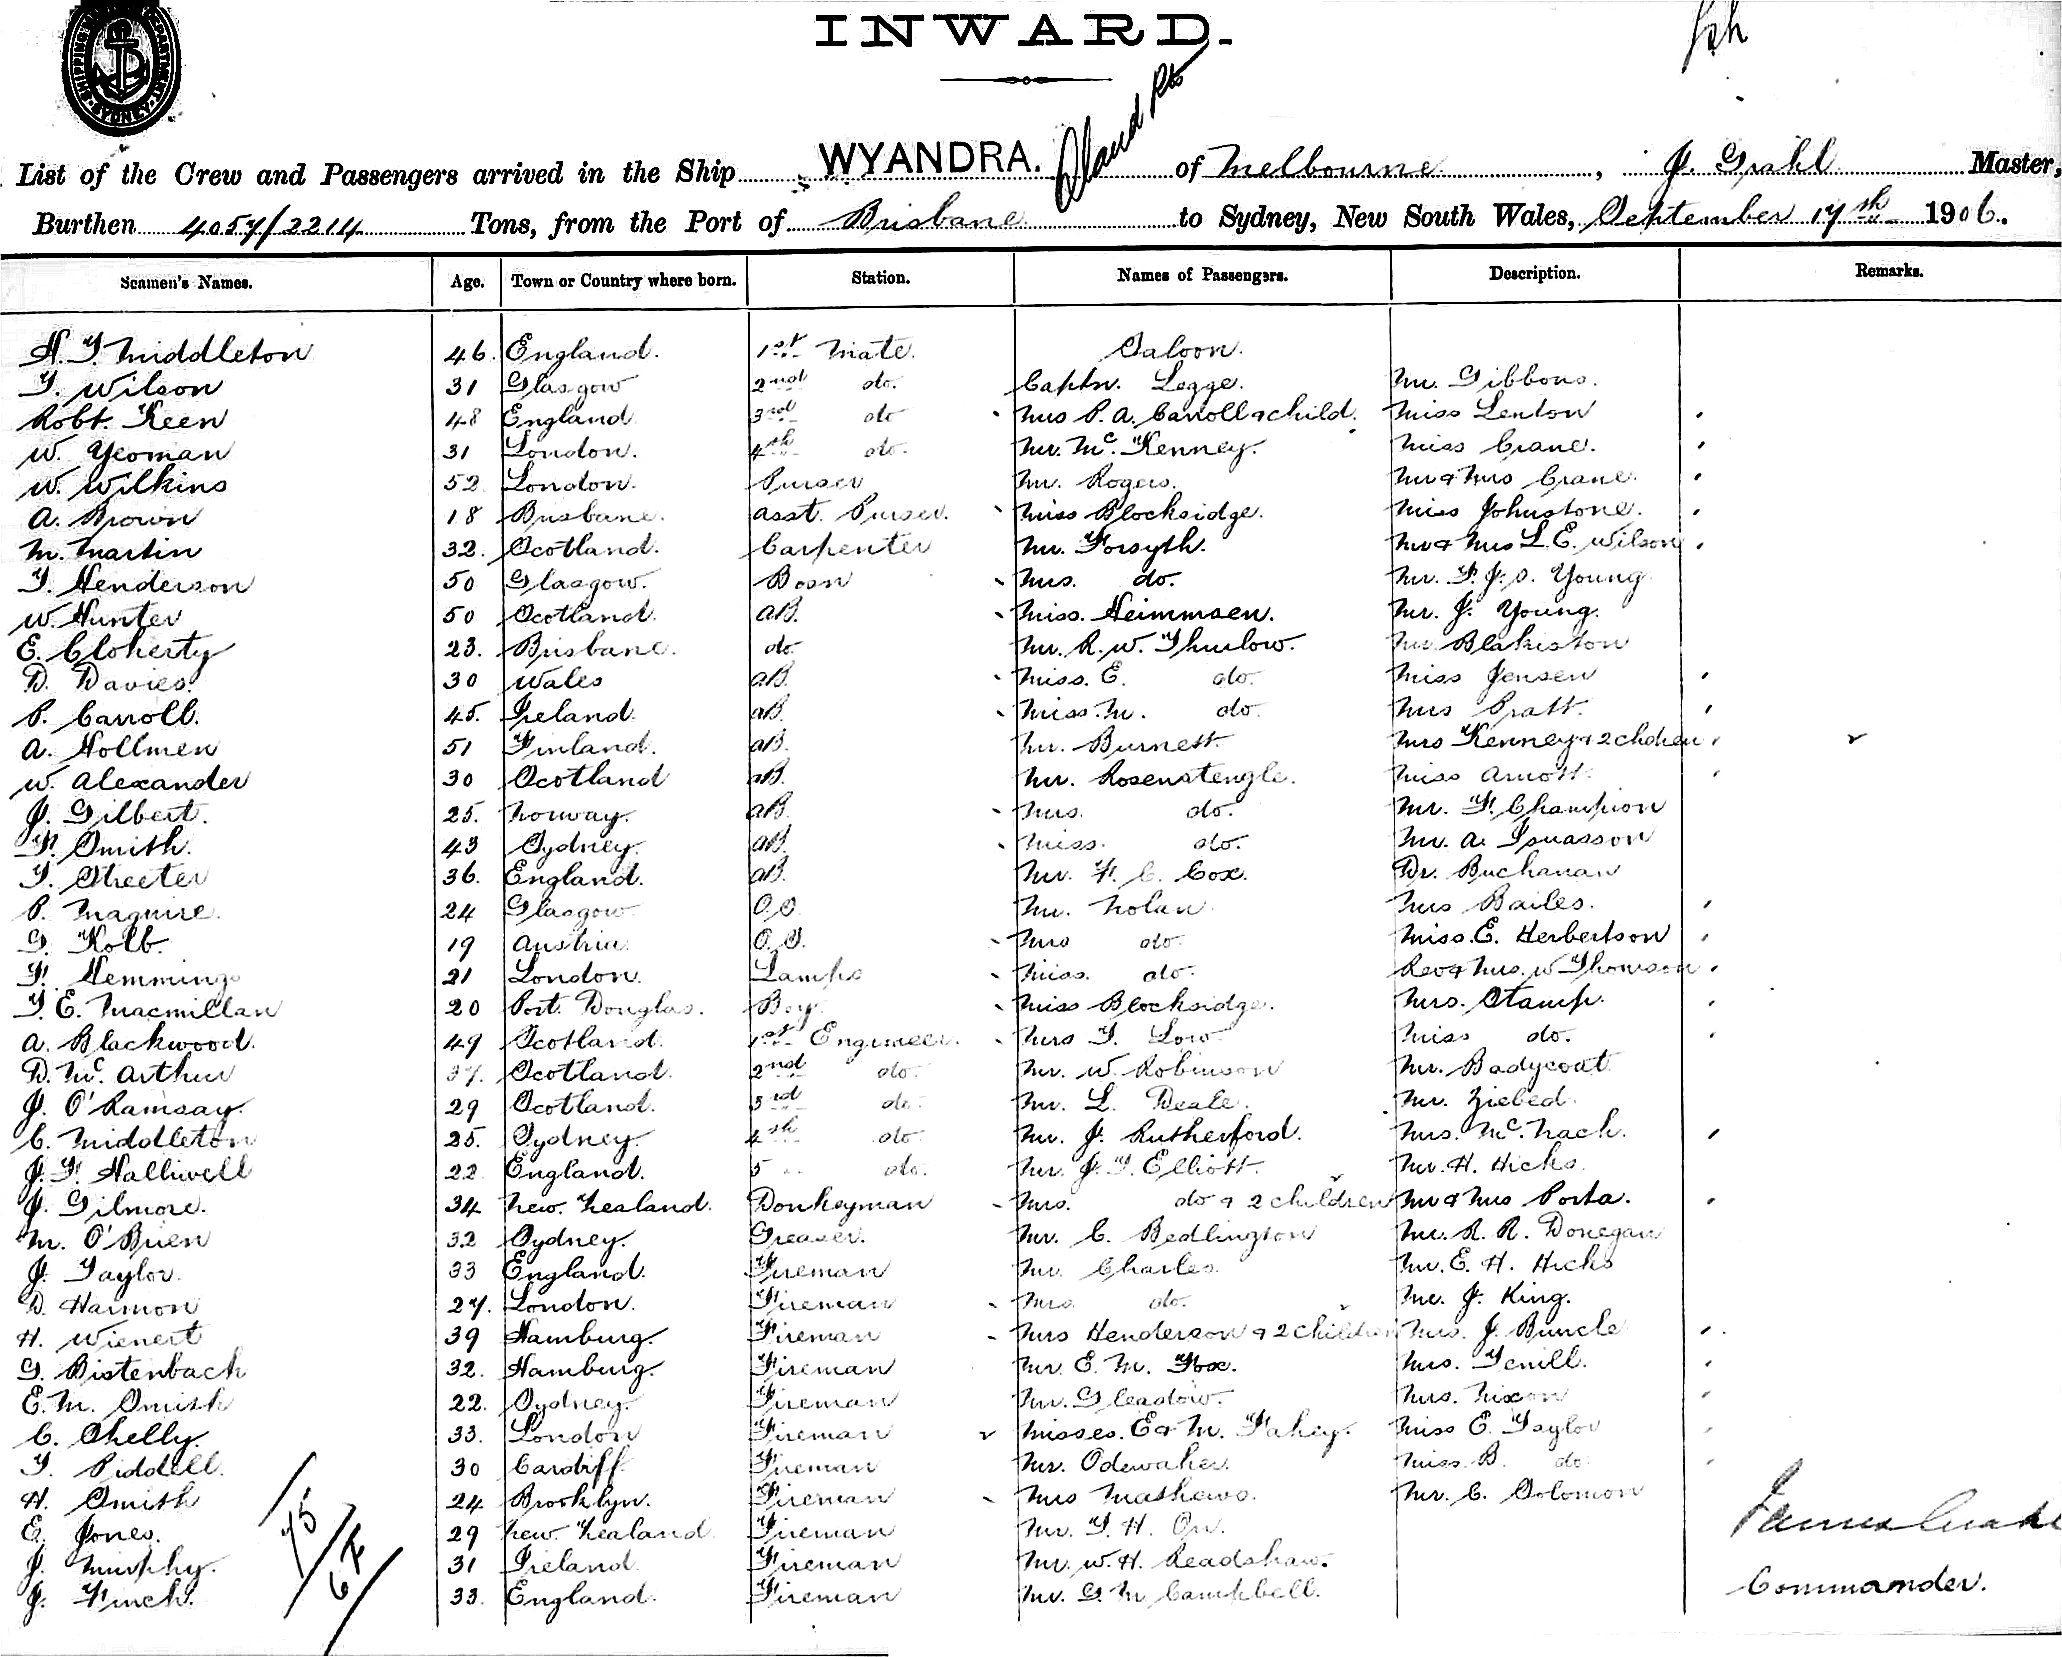 SHIPPING DEPARTMENT SYDNEY
INWARD.
WYANDRA.
List of the Crew and Passengers arrived in the Ship WYANDRA. of Melbourne, J. Grahl Master,
Burthen 4057/2214 Tons, from the Port of Brisbane to Sydney, New South Wales, September 17th 1906.
Seamen's Names. Age. Town or Country where born. Station. Names of Passengers. Description. Remarks.
H. T. Middleton 46. England. 1st Mate. Saloon.
T. Wilson 31 Glasgow 2nd do. Captn. Legge. Mr. Gibbons.
Robt. Keen 48 England 3rd do Mrs P. A. Carroll & child. Miss Lenton
W. Yeoman 31 London. 4th do. Mr. Mc. Kenney. Miss Crane.
W. Wilkins 52 London. Purser Mr. Rogers. Mr & Mrs Crane.
A. Brown 18 Brisbane. Asst. Purser. Miss Blocksidge. Miss Johnstone.
M. Martin 32. Scotland. Carpenter Mr. Forsyth. Mr & Mrs L. E. Wilson
T. Henderson 50 Glasgow. Bosn Mrs. do. Mr. F. J. S. Young
W. Hunter 50 Scotland. AB. Miss. Heimmsen. Mr. J. Young.
E. Cloherty 23. Brisbane. do. Mr. R. W. Thurlow. Mr. Blakiston
D. Davies. 30 Wales AB. Miss. E. do. Miss Jensen
P. Carroll. 45. Ireland. AB. Miss. M. do. Mrs Pratt.
A. Hollmen 51 Finland. AB. Mr. Burnett. Mrs Kenney & 2 chdren
W. Alexander 30 Scotland AB. Mr. Rosenstengle. Miss Arnott.
J. Gilbert. 25. Norway. AB. Mrs. do. Mr. F. Champion
F. Smith. 43 Sydney. AB. Miss. do. Mr. A.
T. Streeter 36. England. AB. Mr. F. C. Cox. Dr. Buchanan
P. Maguire. 24 Glasgow O.S. Mr. Nolan Mrs Bailes.
G. Kolb. 19 Austria. O.S. Mrs do. Miss. E. Herbertson
F. Hemmings 21 London. Lamps Miss. do. Rev & Mrs. W Thomson
T. E. Macmillan 20 Port. Douglas. Boy. Miss Blocksidge. Mrs. Stamp.
A. Blackwood. 49 Scotland. 1st Engineer. Mrs T. Low Miss do.
D. Mc. Arthur 37. Scotland. 2nd do. Mr. W. Robinson Mr. Badycoat
J. O'Ramsay. 29 Scotland. 3rd do. Mr. L. Deale. Mr. Ziebed.
C. Middleton 25. Sydney. 4th do Mr. J. Rutherford. Mrs. Mc. Nach.
J. F. Halliwell 22 England. 5 do. Mr. J. T. Elliott. Mr. H. Hicks.
J. Gilmore. 34 New. Zealand. Donkeyman Mrs. do & 2 children Mr & Mrs Porta.
M. O'Brien 32 Sydney. Greaser. Mr. C. Bedlington Mr. R. R. Donegan
J. Taylor. 33 England. Fireman Mr. Charles. Mr. E. H. Hicks
D. Harmon 27. London. Fireman Mrs. do. Mr. J. King.
H. Wienert 39 Hamburg. Fireman Mrs Henderson & 2 children Mrs. J. Buncle
G. Bistenbach 32. Hamburg. Fireman Mr E. M. Fox. Mrs. Tenill.
E. M. Smith 22. Sydney. Fireman Mr. Gleadow. Mrs. Nixon
C. Shelly. 33. London Fireman Misses. E & M. Fahey. Miss E. Taylor
T. Piddell. 30 Cardiff. Fireman Mr. Odewaher. Miss. B. do
H. Smith 24 Brooklyn. Fireman Mrs Mathews. Mr. C. Solomon
E. Jones. 29 New. Zealand. Fireman Mr. T. H. Orr.
J. Murphy. 31 Ireland. Fireman Mr. W. H. Readshaw.
J. Finch. 33. England. Fireman Mr. G. M Campbell.
Commander.